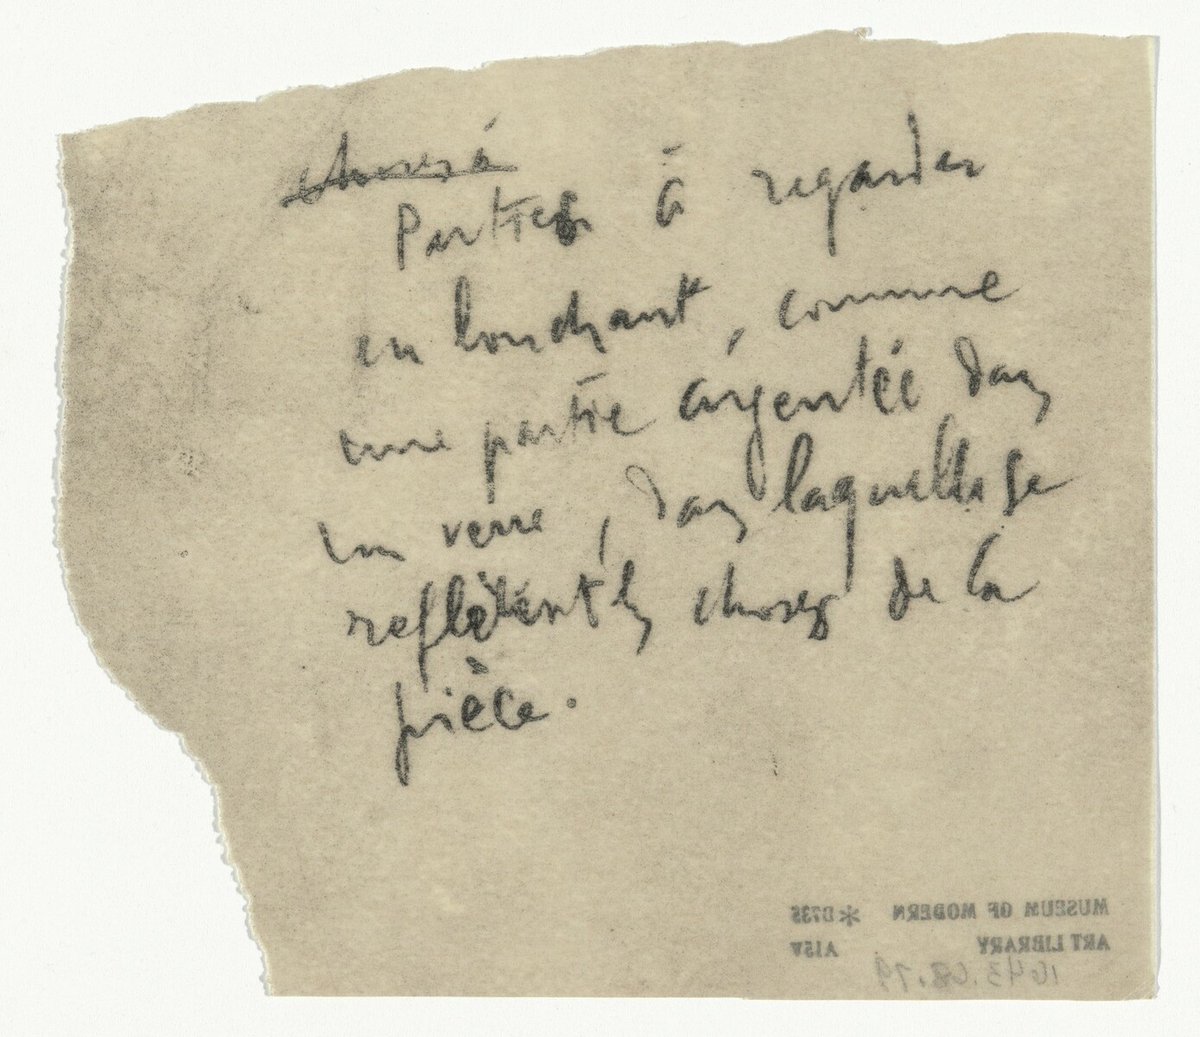 choses à
Parties à regarder
en louchant, comme
une partie argentée dans
un verre, dans laquelle se
reflètent les choses de la
pièce.
MUSEUM OF MODERN *D735
ART LIBRARY A15v
1643.68.19